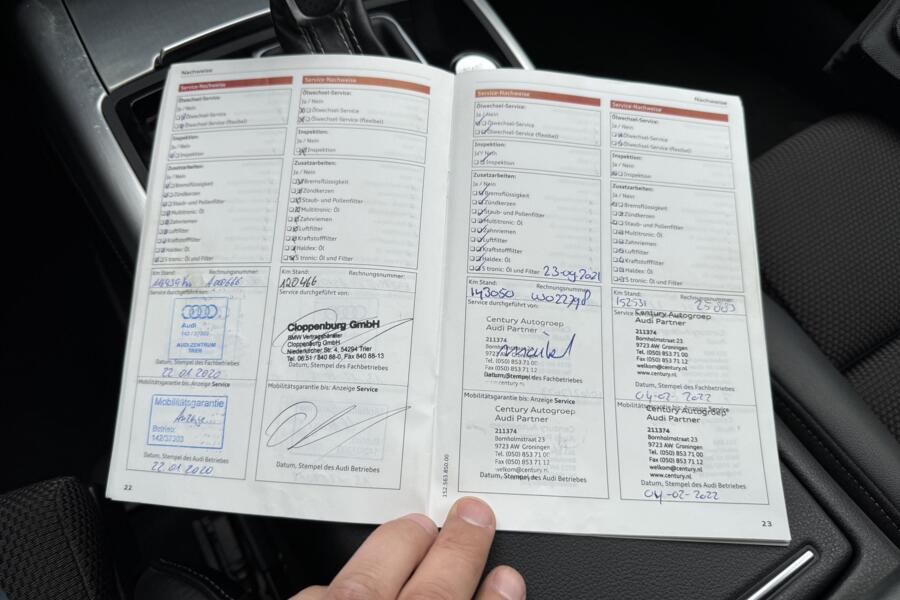 Nachweise
Service-Nachweise
Ölwechsel-Service:
Ja / Nein
Ölwechsel-Service
Ölwechsel-Service (flexibel)
Inspektion:
Ja / Nein
Inspektion
Zusatzarbeiten:
Ja / Nein
Bremsflüssigkeit
Zündkerzen
Staub- und Pollenfilter
Multitronic: Öl
Zahnriemen
Luftfilter
Kraftstofffilter
Haldex: Öl
S tronic: Öl und Filter
Km Stand: Rechnungsnummer:
Service durchgeführt von:
Audi
142/37303
AUDI ZENTRUM
TRIER
Datum, Stempel des Fachbetriebes
22.01.2020
Mobilitätsgarantie bis: Anzeige Service
Mobilitätsgarantie
Anzeige
Betrieb:
142/37303
Datum, Stempel des Audi Betriebes
22.01.2020
22
Service-Nachweise
Ölwechsel-Service:
Ja / Nein
Ölwechsel-Service
Ölwechsel-Service (flexibel)
Inspektion:
Ja / Nein
Inspektion
Zusatzarbeiten:
Ja / Nein
Bremsflüssigkeit
Zündkerzen
Staub- und Pollenfilter
Multitronic: Öl
Zahnriemen
Luftfilter
Kraftstofffilter
Haldex: Öl
S tronic: Öl und Filter
Km Stand: Rechnungsnummer:
120466
Service durchgeführt von:
Cloppenburg GmbH
BMW Vertragshändler
Cloppenburg GmbH
Niederkircher Str. 4, 54294 Trier
Tel. 06 51/ 840 88-0, Fax 840 88-13
Datum, Stempel des Fachbetriebes
Mobilitätsgarantie bis: Anzeige Service
Datum, Stempel des Audi Betriebes
152.563.850.00
Service-Nachweise
Ölwechsel-Service:
Ja / Nein
Ölwechsel-Service
Ölwechsel-Service (flexibel)
Inspektion:
Ja / Nein
Inspektion
Zusatzarbeiten:
Ja / Nein
Bremsflüssigkeit
Zündkerzen
Staub- und Pollenfilter
Multitronic: Öl
Zahnriemen
Luftfilter
Kraftstofffilter
Haldex: Öl
S tronic: Öl und Filter 23-09-2021
Km Stand: Rechnungsnummer:
143050 W022798
Service durchgeführt von:
Century Autogroep
Audi Partner
211374
Bornholmstraat 23
9723 AW Groningen
Tel. (050) 853 71 00
Fax (050) 853 71 12
Datum, Stempel des Fachbetriebes
Mobilitätsgarantie bis: Anzeige Service
Century Autogroep
Audi Partner
211374
Bornholmstraat 23
9723 AW Groningen
Tel. (050) 853 71 00
Fax (050) 853 71 12
welkom@century.nl
Datum, Stempel des Audi Betriebes
Nachweise
Service-Nachweise
Ölwechsel-Service:
Ja / Nein
Ölwechsel-Service
Ölwechsel-Service (flexibel)
Inspektion:
Ja / Nein
Inspektion
Zusatzarbeiten:
Ja / Nein
Bremsflüssigkeit
Zündkerzen
Staub- und Pollenfilter
Multitronic: Öl
Zahnriemen
Luftfilter
Kraftstofffilter
Haldex: Öl
S tronic: Öl und Filter
Km Stand: Rechnungsnummer:
152531
Century Autogroep
Audi Partner
211374
Bornholmstraat 23
9723 AW Groningen
Tel. (050) 853 71 00
Fax (050) 853 71 12
welkom@century.nl
www.century.nl
Datum, Stempel des Fachbetriebes
04-02-2022
Mobilitätsgarantie bis: Anzeige Service
Century Autogroep
Audi Partner
211374
Bornholmstraat 23
9723 AW Groningen
Tel. (050) 853 71 00
Fax (050) 853 71 12
welkom@century.nl
www.century.nl
Datum, Stempel des Audi Betriebes
04-02-2022
23